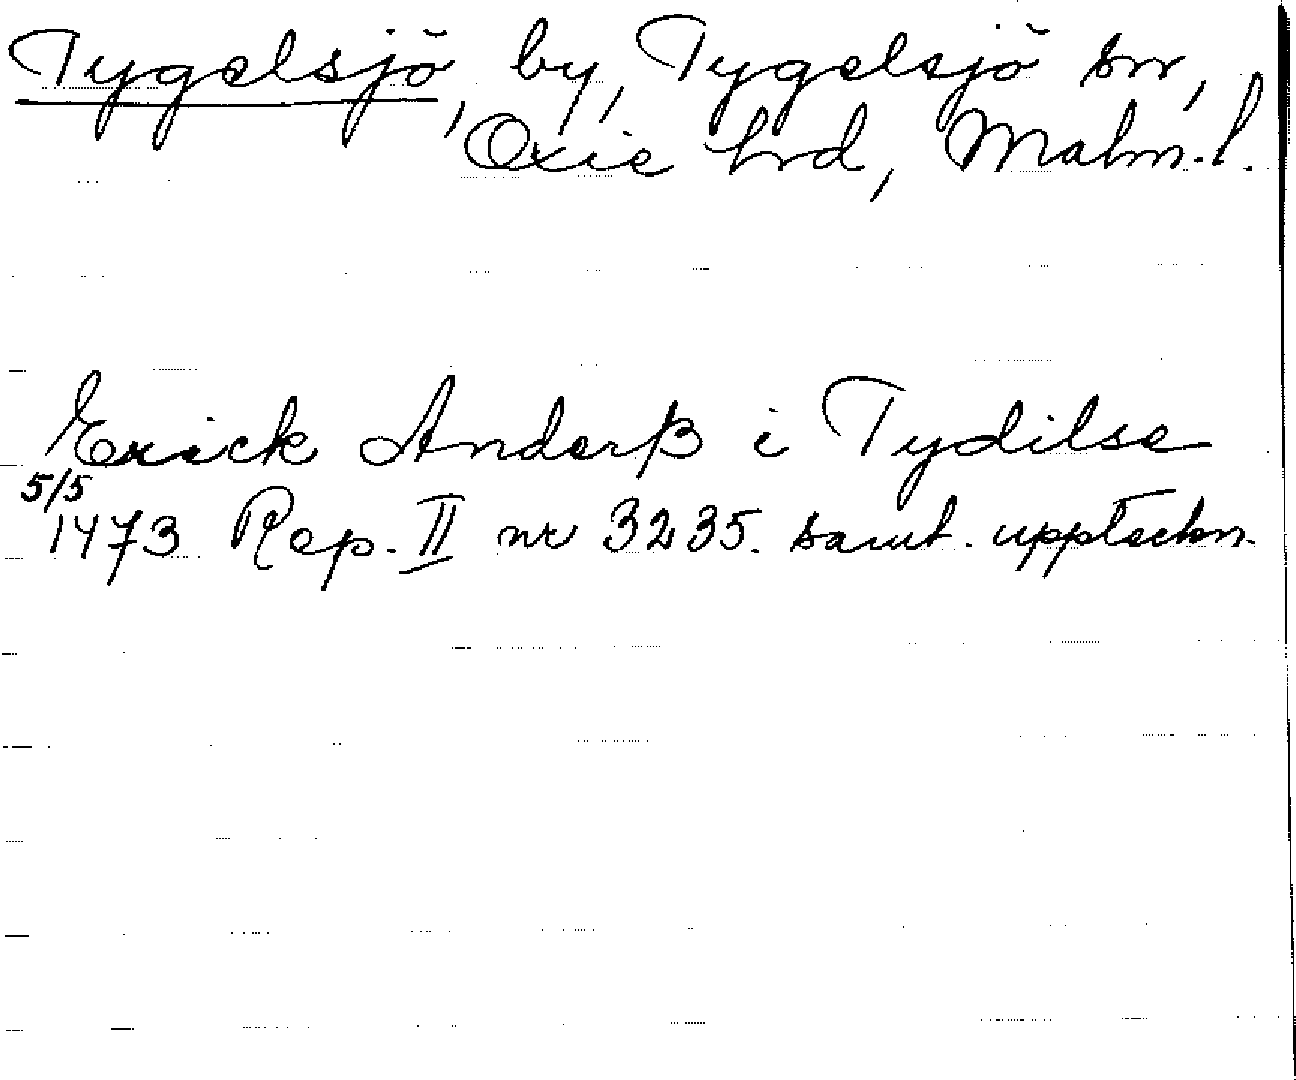 Tygelsjö, by, Tygelsjö sn,
Oxie hrd, Malm.l.
Erick Anderß i Tydilse
5/5
1473 Rep. II nr 3235. samt. uppteckn.